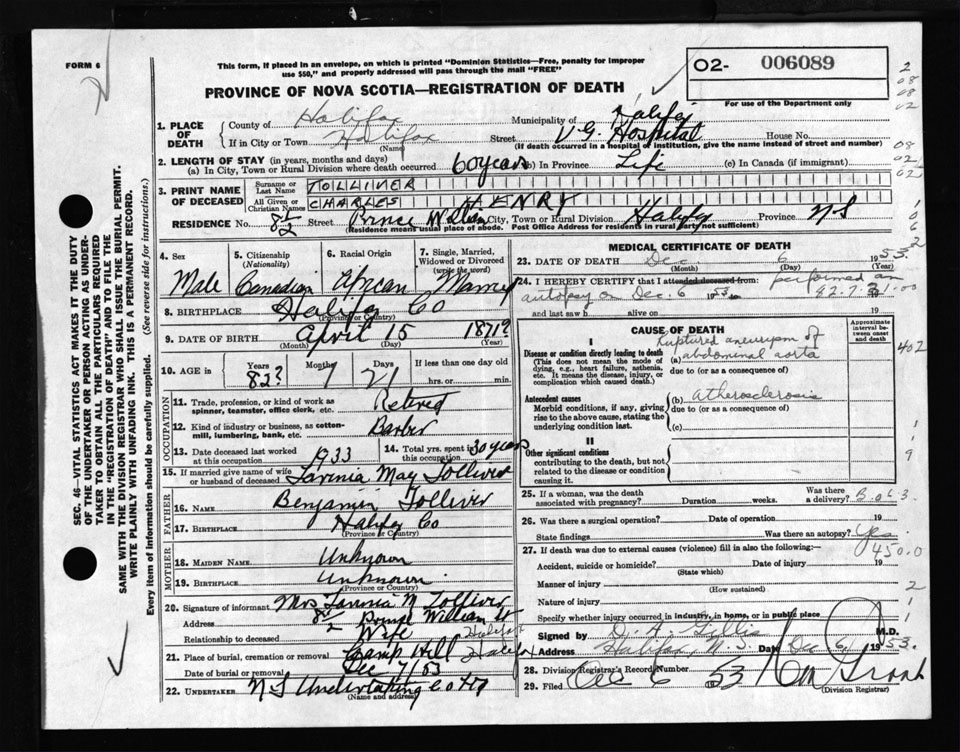 FORM 6
This form, if placed in an envelope, on which is printed "Dominion Statistics—Free, penalty for improper
use $50," and properly addressed will pass through the mail "FREE"
PROVINCE OF NOVA SCOTIA—REGISTRATION OF DEATH
O2- 006089
For use of the Department only
1. PLACE OF DEATH
County of Halifax Municipality of Halifax
If in City or Town Halifax Street V.G. Hospital House No.
(Name) (If death occurred in a hospital or institution, give the name instead of street and number)
2. LENGTH OF STAY (in years, months and days)
(a) In City, Town or Rural Division where death occurred 60 years (b) In Province Life (c) In Canada (if immigrant)
3. PRINT NAME OF DECEASED
Surname or Last Name TOLLIVER
All Given or Christian Names CHARLES HENRY
RESIDENCE No. 8½ Street Prince William City, Town or Rural Division Halifax Province N S
(Residence means usual place of abode. Post Office Address for residents in rural part not sufficient)
4. Sex
Male
5. Citizenship (Nationality)
Canadian
6. Racial Origin
African
7. Single, Married, Widowed or Divorced (write the word)
Married
8. BIRTHPLACE Halifax Co
(Province or Country)
9. DATE OF BIRTH April 15 1871?
(Month) (Day) (Year)
10. AGE in Years 82? Months 7 Days 21 If less than one day old
hrs. or min.
OCCUPATION
11. Trade, profession, or kind of work as
spinner, teamster, office clerk, etc. Retired
12. Kind of industry or business, as cotton-
mill, lumbering, bank, etc. Barber
13. Date deceased last worked at this occupation 1933 14. Total yrs. spent in this occupation 30 years
15. If married give name of wife
or husband of deceased Lavinia May Tolliver
FATHER
16. NAME Benjamin Tolliver
17. BIRTHPLACE Halifax Co
(Province or Country)
MOTHER
18. MAIDEN NAME Unknown
19. BIRTHPLACE Unknown
(Province or Country)
20. Signature of informant Mrs Lavinia M Tolliver
Address 8½ Prince William St
Relationship to deceased Wife Halifax
21. Place of burial, cremation or removal Camp Hill Halifax
Date of burial or removal Dec 7/53
22. UNDERTAKER N S Undertaking
(Name and address)
MEDICAL CERTIFICATE OF DEATH
23. DATE OF DEATH Dec. 6 1953
(Month) (Day) (Year)
24. I HEREBY CERTIFY that I attended deceased from: performed an
autopsy on Dec. 6 1953
and last saw h alive on 19
CAUSE OF DEATH
Approximate interval between onset and death
I
Disease or condition directly leading to death
(This does not mean the mode of
dying, e.g., heart failure, asthenia,
etc. It means the disease, injury, or
complication which caused death.)
Ruptured aneurysm of
(a) abdominal aorta
due to (or as a consequence of)
Antecedent causes
Morbid conditions, if any, giving
rise to the above cause, stating the
underlying condition last.
(b) atherosclerosis
due to (or as a consequence of)
(c)
II
Other significant conditions
contributing to the death, but not
related to the disease or condition
causing it.
25. If a woman, was the death
associated with pregnancy? Duration weeks. Was there a delivery?
26. Was there a surgical operation? Date of operation 19
State findings Was there an autopsy? Yes
27. If death was due to external causes (violence) fill in also the following:—
Accident, suicide or homicide? Date of injury 19
(State which)
Manner of injury
(How sustained)
Nature of injury
Specify whether injury occurred in industry, in home, or in public place
Signed by M.D.
Address Halifax, N.S. Date Dec 6, 1953.
28. Division Registrars Record Number
29. Filed Dec 6 1953
(Division Registrar)
SEC. 46—VITAL STATISTICS ACT MAKES IT THE DUTY
OF THE UNDERTAKER OR PERSON ACTING AS UNDER-
TAKER TO OBTAIN ALL THE PARTICULARS REQUIRED
IN THE "REGISTRATION OF DEATH" AND TO FILE THE
SAME WITH THE DIVISION REGISTRAR WHO SHALL ISSUE THE BURIAL PERMIT.
WRITE PLAINLY WITH UNFADING INK. THIS IS A PERMANENT RECORD.
Every item of information should be carefully supplied. (See reverse side for instructions.)